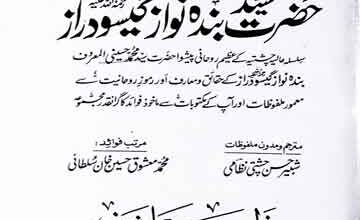 سید
حضرت بندہ نواز گیسو دراز
سلسلہ عالیہ چشتیہ کے عظیم روحانی پیشوا حضرت سید محمد حسینی المعروف
بندہ نواز گیسو دراز کے حقائق و معارف اور رموزِ روحانیت سے
معمور ملفوظات اور آپ کے مکتوبات سے ماخوذ فوائد کا گرانقدر مجموعہ
مترجم و مدون ملفوظات مرتب فوائد:
شبیر حسن چشتی نظامی محمد معشوق حسین خان سلطانی